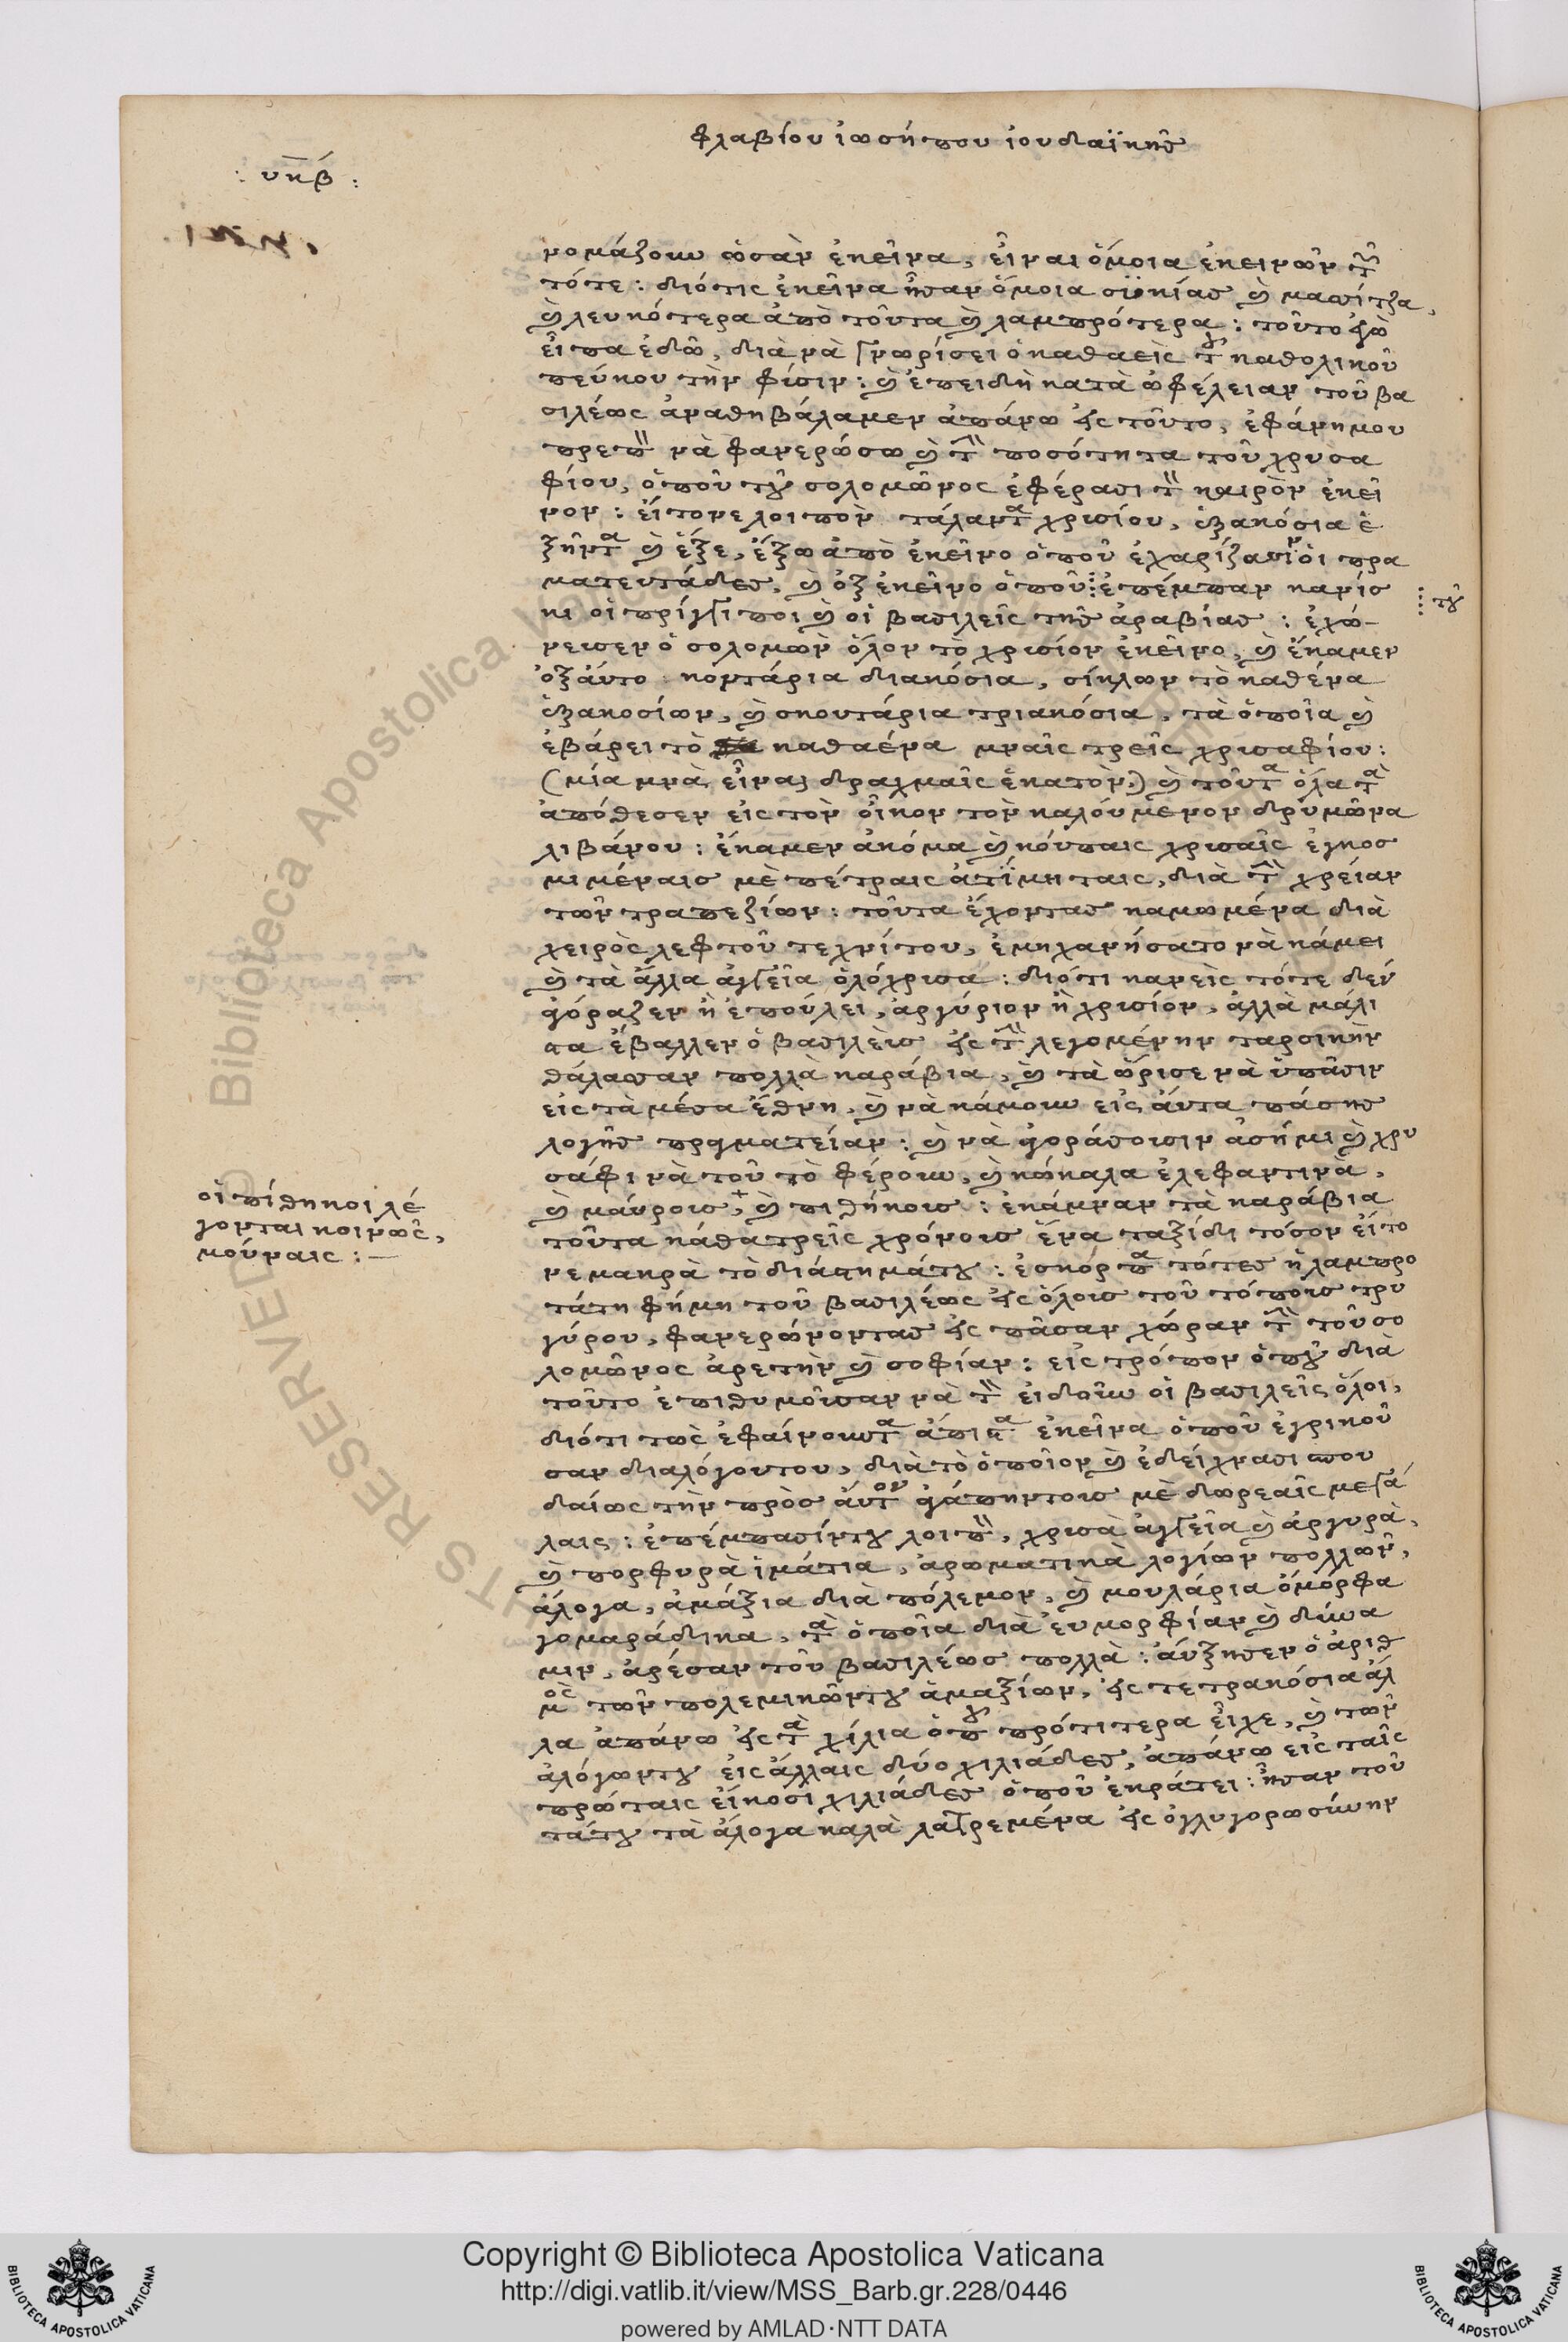 φλαβίου ἰωσήπου ἰουδαϊκῆς
: υκβ :
νομάζουν ὡσὰν ἐκεῖνα, εἶναι ὅμοια ἐκεινῶν τῶν
τότε : διότις ἐκεῖνα ἦσαν ὅμοια συκίας καὶ μασίτζα,
καὶ λευκότερα ἀπὸ τοῦτα καὶ λαμπρότερα : τοῦτο ἐγὼ
εἶπα ἐδῶ, διὰ νὰ γνωρίσει ὁ καθαεὶς τοῦ καθολικοῦ
πεύκου τὴν φύσιν : καὶ ἐπειδὴ κατὰ ὠφέλειαν τοῦ βα
σιλέως ἀναθηβάλαμεν ἀπάνω εἰς τοῦτο, ἐφάνη μου
πρεπὸν νὰ φανερώσω καὶ τὴν ποσότητα τοῦ χρυσα
φίου, ὁποῦ τοῦ σολομῶνος ἐφέρασι τὸν καιρὸν ἐκεῖ
νον : εἴτονε λοιπὸν τάλαντα χρισίου, ἑξακόσια ἑ
ξῆντα καὶ ἕξε, ἔξω ἀπὸ ἐκεῖνο ὁποῦ ἐχαρίζασιν οἱ πρα
ματευτάδες, καὶ ὀξ ἐκεῖνο ὁποῦ ⁝ ἐπέμπαν κανίσ
κι οἱ πρίγκιποι καὶ οἱ βασιλεῖς τῆς ἀραβίας : ἐχώ-
⁝ του
νευσεν ὁ σολομὼν ὅλον τὸ χρισίον ἐκεῖνο, καὶ ἔκαμεν
ὀξ αὐτο κοντάρια διακόσια, σίκλων τὸ καθένα
ἑξακοσίων, καὶ σκουτάρια τριακόσια, τὰ ὁποῖα καὶ
ἐβάρει τὸ καθαένα μναῖς τρεῖς χρισαφίου :
(μία μνὰ, εἶναι δραχμαῖς ἑκατὸν) καὶ τοῦτα ὅλα τὰ
ἀπόθεσεν εἰς τὸν οἶκον τὸν καλούμενον δρυμῶνα
λιβάνου : ἔκαμεν ἀκόμα καὶ κούπαις χρισαῖς ἐγκοσ
μιμέναις μὲ πέτραις ἀτίμηταις, διὰ τὴν χρείαν
τῶν τραπεζίων : τοῦτα ἔχοντας καμωμένα διὰ
χειρὸς λεφτοῦ τεχνίτου, ἐμηχανήσατο νὰ κάμει
καὶ τὰ ἄλλα ἀγγεῖα ὁλόχρισα : διότι κανεὶς τότε δὲν
ἀγόραζεν ἢ ἐπούλει, ἀργύριον ἢ χρισίον, ἀλλὰ μάλι
στα ἔβαλλεν ὁ βασιλεὺς εἰς τὴν λεγομένην ταρσικὴν
θάλασσαν πολλὰ καράβια, καὶ τὰ ὥρισε νὰ ὑπᾶσιν
εἰς τὰ μέσα ἔθνη, καὶ νὰ κάμουν εἰς αὐτα πάσης
λογῆς πραματείαν : καὶ νὰ ἀγοράσουσιν ἀσήμι καὶ χρυ
σάφι νὰ τοῦ τὸ φέρουν, καὶ κόκαλα ἐλεφαντινὰ,
καὶ μαύρους, + καὶ πιθήκους : ἐκάμναν τὰ καράβια
τοῦτα κάθα τρεῖς χρόνους ἕνα ταξίδι τόσον εἴτο
νε μακρὰ τὸ διάστημάτου : ἐσκόρπα τότες ἡ λαμπρο
οἱ πίθηκοι λέ
γονται κοινῶς,
μούναις : —
τάτη φήμη τοῦ βασιλέως εἰς ὅλους τοῦ τόπους τρυ
γύρου, φανερώνοντας εἰς πᾶσαν χώραν τὴν τοῦ σο
λομῶνος ἀρετὴν καὶ σοφίαν : εἰς τρόπον ὁποῦ διὰ
τοῦτο ἐπιθυμοῦσαν νὰ τὸν εἰδοῦν οἱ βασιλεῖς ὅλοι,
διότι τὼς ἐφαίνουντα ἄπιστα ἐκεῖνα ὁποῦ ἐγρικοῦ
σαν διαλόγουντου, διὰ τὸ ὁποῖον καὶ ἐδείχνασι σπου
δαίως τὴν πρὸς αὐτὸν ἀγάπηντους μὲ δωρεαῖς μεγά
λαις : ἐπέμπασίντου λοιπὸν, χρισὰ ἀγγεῖα καὶ ἀργυρὰ,
καὶ πορφυρὰ ἱμάτια, ἀρωματικὰ λογίων πολλῶν,
ἄλογα, ἁμάξια διὰ πόλεμον, καὶ μουλάρια ὄμορφα
γομαράδικα, τὰ ὁποῖα διὰ εὐμορφίαν καὶ δύνα
μιν, ἀρέσαν τοῦ βασιλέως πολλὰ : αὔξησεν ὁ ἀριθ
μὸς τῶν πολεμικῶντου ἁμαξίων, εἰς τετρακόσια ἄλ
λα ἀπάνω εἰς τὰ χίλια ὁποῦ πρότιτερα εἶχε, καὶ τῶν
ἀλόγωντου εἰς ἄλλαις δύο χιλιάδες, ἀπάνω εἰς ταῖς
πρώταις εἴκοσι χιλιάδες ὁποῦ ἐκράτει : ἦσαν τοῦ
τάτου τὰ ἄλογα καλὰ λαγρεμένα εἰς ὀγλυγορωσύνην
Copyright © Biblioteca Apostolica Vaticana
http://digi.vatlib.it/view/MSS_Barb.gr.228/0446
powered by AMLAD·NTT DATA